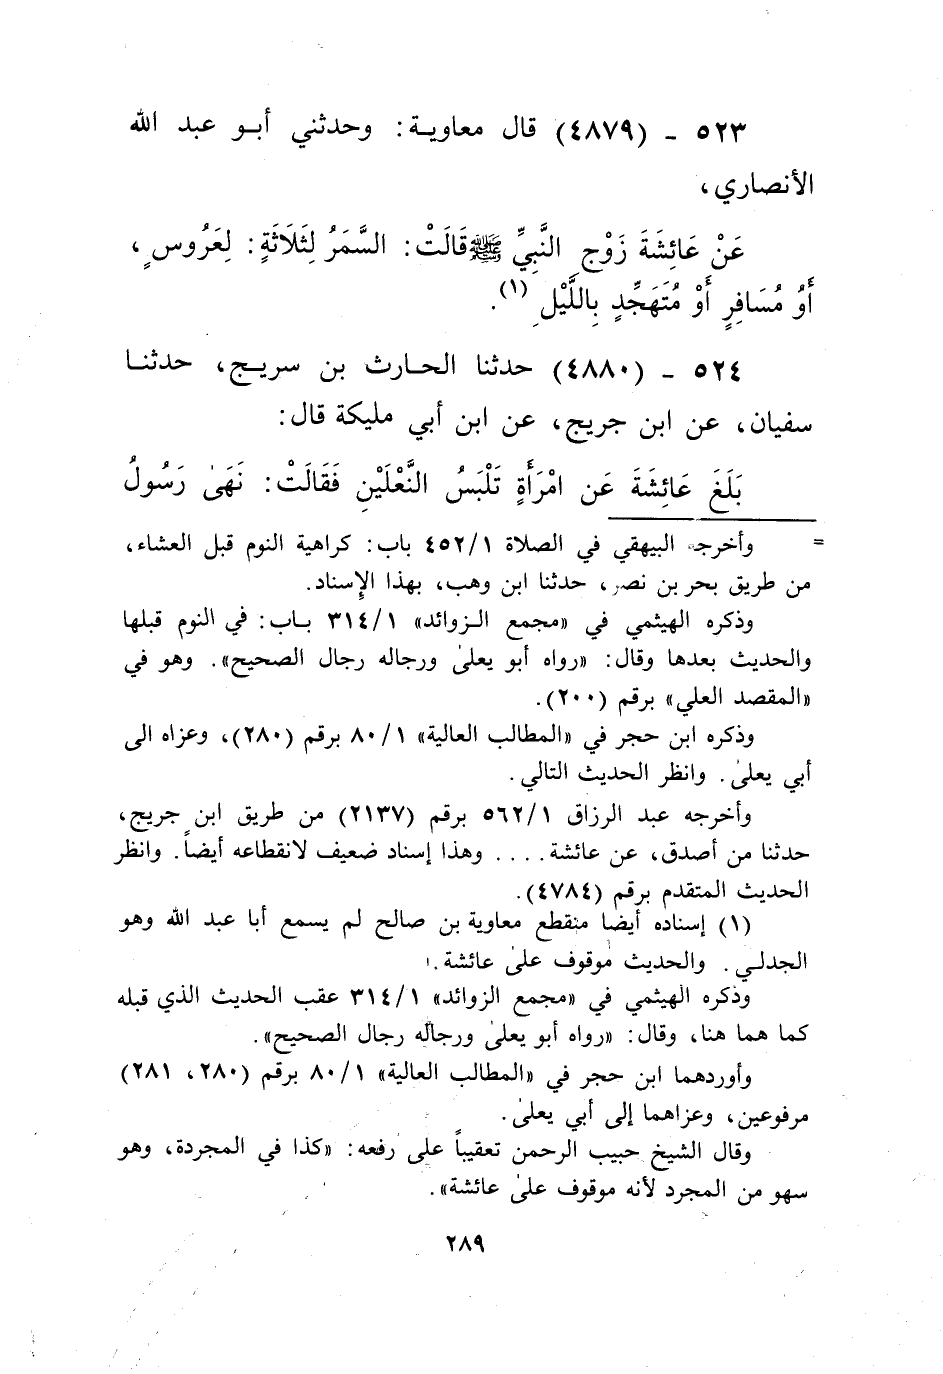 ٥٢٣ ـ (٤٨٧٩) قال معاوية: وحدثني أبو عبد الله
الأنصاري،
عَنْ عَائِشَةَ زَوْجِ النَّبِيِّ ﷺ قَالَتْ: السَّمَرُ لِثَلَاثَةٍ: لِعَرُوسٍ،
أَوْ مُسَافِرٍ أَوْ مُتَهَجِّدٍ بِاللَّيْلِ (١).
٥٢٤ ـ (٤٨٨٠) حدثنا الحارث بن سريج، حدثنا
سفيان، عن ابن جريج، عن ابن أبي مليكة قال:
بَلَغَ عَائِشَةَ عَن امْرَأَةٍ تَلْبَسُ النَّعْلَيْنِ فَقَالَتْ: نَهَىٰ رَسُولُ
= وأخرجه البيهقي في الصلاة ٤٥٢/١ باب: كراهية النوم قبل العشاء،
من طريق بحر بن نصر، حدثنا ابن وهب، بهذا الإسناد.
وذكره الهيثمي في «مجمع الزوائد» ٣١٤/١ باب: في النوم قبلها
والحديث بعدها وقال: «رواه أبو يعلىٰ ورجاله رجال الصحيح». وهو في
«المقصد العلي» برقم (٢٠٠).
وذكره ابن حجر في «المطالب العالية» ٨٠/١ برقم (٢٨٠)، وعزاه الى
أبي يعلىٰ. وانظر الحديث التالي.
وأخرجه عبد الرزاق ٥٦٢/١ برقم (٢١٣٧) من طريق ابن جريج،
حدثنا من أصدق، عن عائشة.... وهذا إسناد ضعيف لانقطاعه أيضاً. وانظر
الحديث المتقدم برقم (٤٧٨٤).
(١) إسناده أيضا منقطع معاوية بن صالح لم يسمع أبا عبد الله وهو
الجدلي. والحديث موقوف علىٰ عائشة.
وذكره الهيثمي في «مجمع الزوائد» ٣١٤/١ عقب الحديث الذي قبله
كما هما هنا، وقال: «رواه أبو يعلىٰ ورجاله رجال الصحيح».
وأوردهما ابن حجر في «المطالب العالية» ٨٠/١ برقم (٢٨٠، ٢٨١)
مرفوعين، وعزاهما إلى أبي يعلىٰ.
وقال الشيخ حبيب الرحمن تعقيباً على رفعه: «كذا في المجردة، وهو
سهو من المجرد لأنه موقوف علىٰ عائشة».
٢٨٩